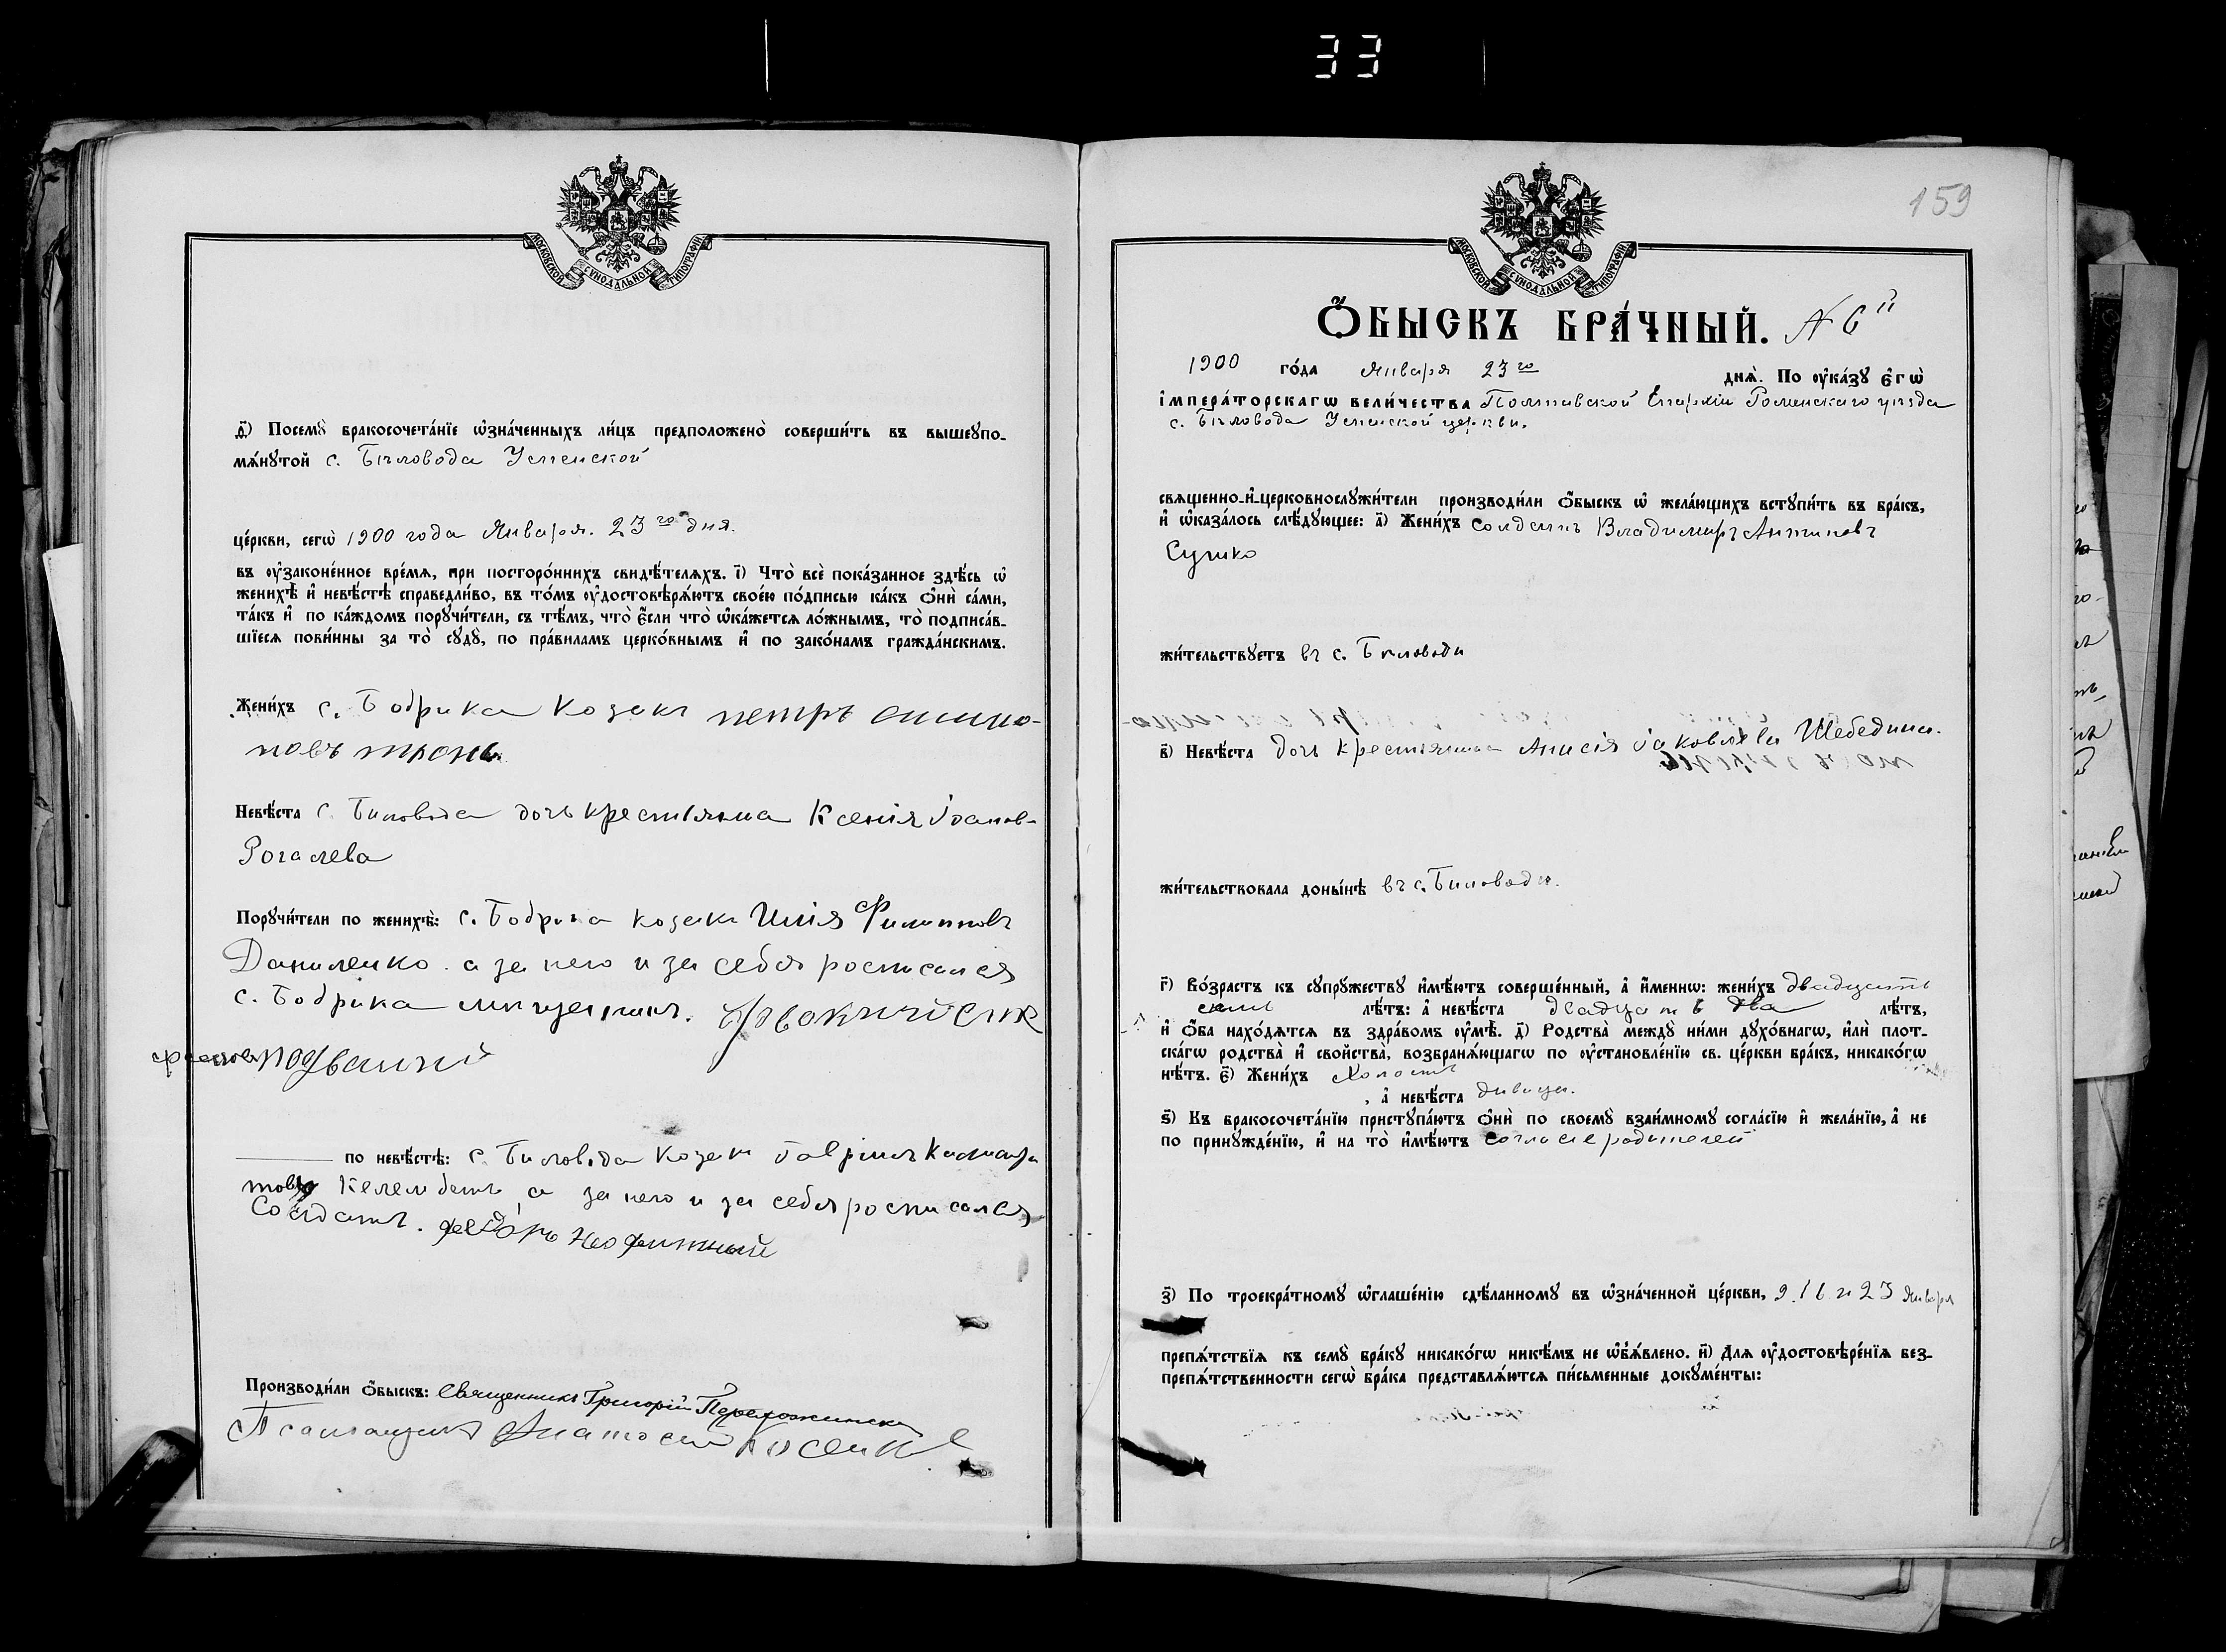 33
МОСКОВСКОЙ СѴНОДАЛЬНОЙ ТИПОГРАФІИ
д҃) Посемꙋ̀ бракосочета́нїе ѡ҆зна́ченныхъ ли́цъ предположено̀ соверши́ть въ вышеꙋпо-
мѧ́нꙋтой с. Бѣловода Успенской
це́ркви, сегѡ̀ 1900 года Января. 23го дня.
въ ᲂу҆законе́нное вре́мѧ, при посторо́ннихъ свидѣ́телѧхъ. і҃) Что̀ всѐ пока́занное здѣ́сь ѡ҆
женихѣ̀ и҆ невѣ́стѣ справедли́во, въ то́мъ ᲂу҆достовѣрѧ́ютъ свое́ю по́дписью ка́къ ѻ҆нѝ са́ми,
та́къ и҆ по ка́ждомъ порꙋчи́тели, съ тѣ́мъ, что̀ є҆́сли что̀ ѡ҆ка́жетсѧ ло́жнымъ, то̀ подписа́в-
шїесѧ пови́нны за то̀ сꙋдꙋ̀, по пра́виламъ церко́внымъ и҆ по зако́намъ гражда́нскимъ.
Жени́хъ с. Бобрика Козакъ петръ
Невѣ́ста с. Биловода дочь крестьянина Ксенія Іоанов-
Рогалева
Порꙋчи́тели по женихѣ̀: с. Бобрика козакъ Илія Филиповъ
Даниленко. а за него и за себя росписался
с. Бобрика
по невѣ́стѣ: с. Биловода Козакъ Гавріилъ
а за него и за себя росписался
Солдатъ. федоръ
Производи́ли ѻ҆́быскъ: Священникъ Григорій
Псаломщикъ
159
МОСКОВСКОЙ СѴНОДАЛЬНОЙ ТИПОГРАФІИ
Ѻ҆́БЫСКЪ БРА́ЧНЫЙ. № 6й
1900 го́да Января 23го днѧ̀. По ᲂу҆ка́зꙋ є҆гѡ̀
і҆мпера́торскагѡ вели́чества Полтавской Епархіи Роменскаго уѣзда
с. Бѣловода Успенской церкви.
свѧщенно-и҆-церковнослꙋжи́тели производи́ли ѻ҆́быскъ ѡ҆ жела́ющихъ встꙋпи́ть въ бра́къ,
и҆ ѡ҆каза́лось слѣ́дꙋющее: а҃) Жени́хъ Солдатъ Владимиръ Антиповъ
Сушко
жи́тельствꙋетъ въ с. Биловоди
в҃) Невѣ́ста дочь крестьянина Анисія Іаковлева Шебедина.
жи́тельствовала доны́нѣ въ с. Биловоди.
г҃) Во́зрастъ къ сꙋпрꙋ́жествꙋ и҆мѣ́ютъ соверше́нный, а҆ и҆́меннѡ: жени́хъ двадцать
семь лѣ́тъ: а҆ невѣ́ста двадцать два лѣ́тъ,
и҆ ѻ҆́ба нахо́дѧтсѧ въ здра́вомъ ᲂу҆мѣ̀. д҃) Родства̀ междꙋ̀ ни́ми дꙋхо́внагѡ, и҆лѝ плот-
ска́гѡ родства̀ и҆ сво́йства, возбранѧ́ющагѡ по ᲂу҆становле́нїю св. це́ркви бра́къ, никако́гѡ
нѣ́тъ. є҃) Жени́хъ Холостъ
, а҆ невѣ́ста дивица.
ѕ҃) Къ бракосочета́нїю пристꙋпа́ютъ ѻ҆нѝ по своемꙋ̀ взаи́мномꙋ согла́сїю и҆ жела́нїю, а҆ не
по принꙋжде́нїю, и҆ на то̀ и҆мѣ́ютъ согласіе родителей
з҃) По троекра́тномꙋ ѡ҆глаше́нїю сдѣ́ланномꙋ въ ѡ҆зна́ченной це́ркви, 9. 16 и 23 Января
препѧ́тствїѧ къ семꙋ̀ бра́кꙋ никако́гѡ никѣ́мъ не ѡ҆б̾ѧ́влено. и҃) Длѧ ᲂу҆достовѣре́нїѧ без-
препѧ́тственности сегѡ̀ бра́ка представлѧ́ютсѧ пи́сьменные докꙋме́нты: